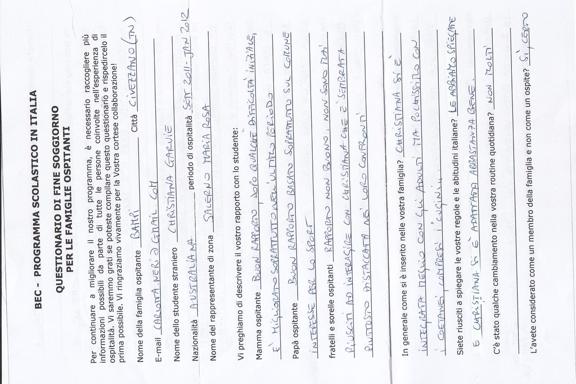 BEC - PROGRAMMA SCOLASTICO IN ITALIA
QUESTIONARIO DI FINE SOGGIORNO
PER LE FAMIGLIE OSPITANTI
Per continuare a migliorare il nostro programma, è necessario raccogliere più
informazioni possibili da parte di tutte le persone coinvolte nell'esperienza di
ospitalità. Vi saremmo grati se poteste compilare questo questionario e rispedircelo il
prima possibile. Vi ringraziamo vivamente per la Vostra cortese collaborazione!
Nome della famiglia ospitante Città CIVEZZANO (TN)
E-mail
Nome dello studente straniero CHRISTIANA GARVIE
Nazionalità AUSTRALIANA periodo di ospitalità SETT 2011-JAN 2012
Nome del rappresentante di zona SALERNO MARIA ROSA
Vi preghiamo di descrivere il vostro rapporto con lo studente:
Mamma ospitante BUON RAPPORTO, DOPO QUALCHE DIFFICOLTÀ INIZIALE,
È MIGLIORATO SOPRATTUTTO NELL'ULTIMO PERIODO
Papà ospitante BUON RAPPORTO BASATO SOPRATTUTTO SUL COMUNE
INTERESSE PER LO SPORT
fratelli e sorelle ospitanti RAPPORTO NON BUONO, NON SONO MAI
RIUSCITI AD INTERAGIRE CON CHRISTIANA CHE È SEMBRATA
PIUTTOSTO DISTACCATA NEI LORO CONFRONTI
In generale come si è inserito nella vostra famiglia? CHRISTIANA SI È
INTEGRATA MEGLIO CON GLI ADULTI MA POCHISSIMO CON
I COETANEI COMPRESI I CUGINI
Siete riusciti a spiegare le vostre regole e le abitudini italiane? LE ABBIAMO SPIEGATE
E CHRISTIANA SI È ADATTATA ABBASTANZA BENE.
C'è stato qualche cambiamento nella vostra routine quotidiana? NON MOLTI
L'avete considerato come un membro della famiglia e non come un ospite? SÌ, CERTO